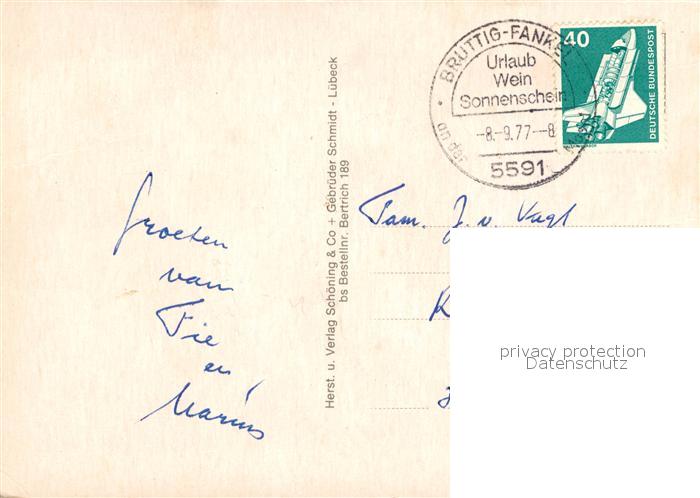 BRUTTIG-FANKEL
Urlaub
Wein
Sonnenschein
-8.-9.77--8
5591
an der
40
DEUTSCHE BUNDESPOST
Herst. u. Verlag Schöning & Co + Gebrüder Schmidt - Lübeck
bs Bestellnr. Bertrich 189
Groeten
van
Fie
en
Marius
Fam. J. v. Vugt
privacy protection
Datenschutz